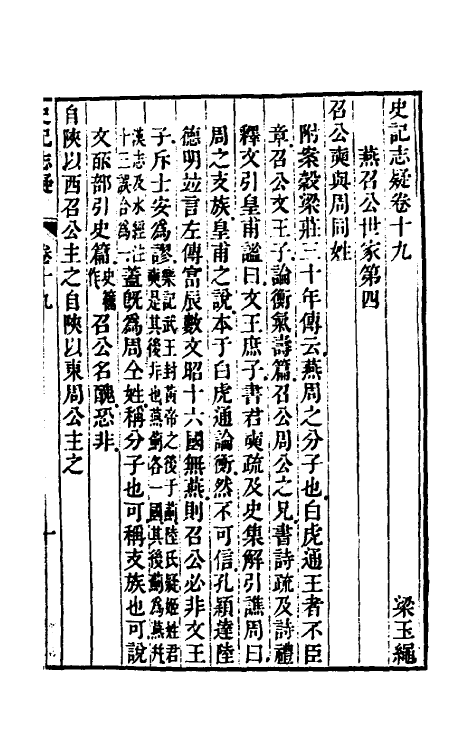 史記志疑卷十九
梁玉繩
燕召公世家第四
召公奭與周同姓
附案穀梁莊三十年傳云燕周之分子也白虎通王者不臣
章召公文王子論衡氣壽篇召公周公之兄書詩疏及詩禮
釋文引皇甫謐曰文王庶子書君奭疏及史集解引譙周曰
周之支族皇甫之說本于白虎通論衡然不可信孔穎達陸
德明並言左傳富辰數文昭十六國無燕則召公必非文王
子斥士安爲謬樂記武王封黃帝之後于薊陸氏疑姬姓君
奭是其後非也燕薊各一國其後薊爲燕幷
漢志及水經注
十三誤合爲一蓋旣爲周仝姓稱分子也可稱支族也可說
文㽕部引史篇史籒作召公名醜恐非
自陝以西召公主之自陝以東周公主之
史記志疑
卷十九
一